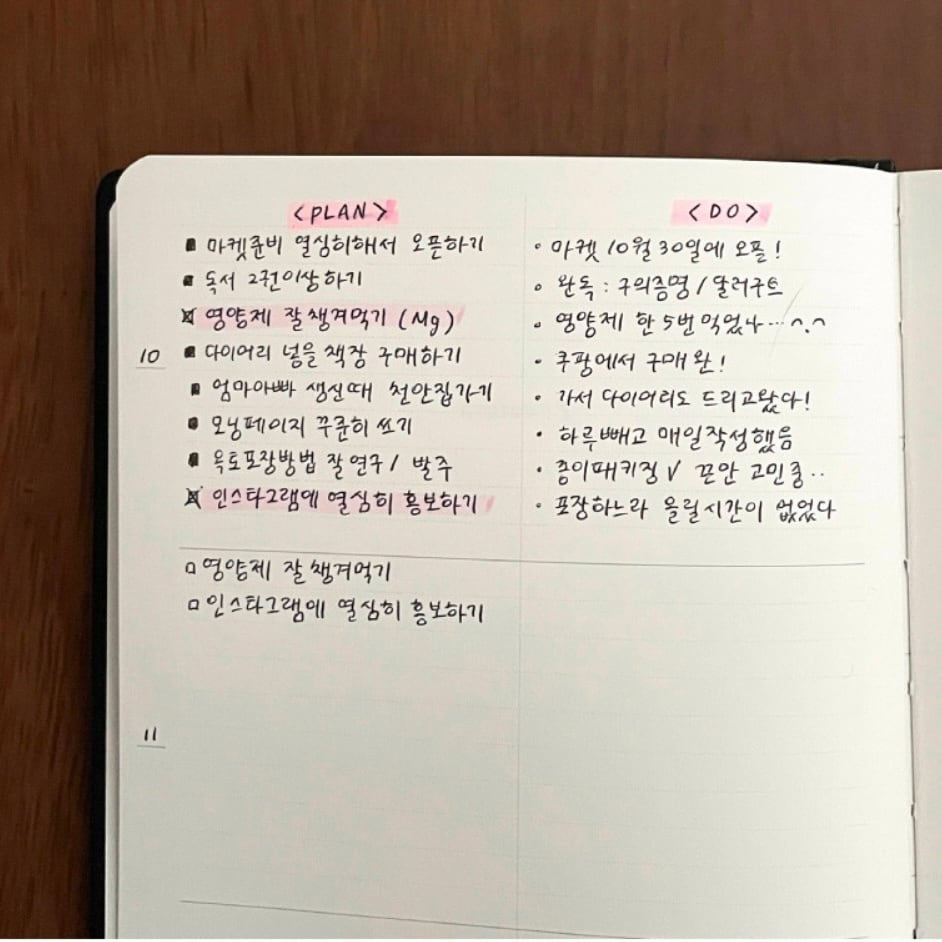 <PLAN>
<DO>
■ 마켓준비 열심히해서 오픈하기
· 마켓 10월 30일에 오픈!
■ 독서 2권이상하기
· 완독 : 구의증명 / 달러구트
☒ 영양제 잘챙겨먹기 (Mg)
· 영양제 한 5번 먹었나…^.^
10
■ 다이어리 넣을 책장 구매하기
· 쿠팡에서 구매완!
■ 엄마아빠 생신때 천안집가기
· 가서 다이어리도 드리고왔다!
■ 모닝페이지 꾸준히 쓰기
· 하루빼고 매일작성했음
■ 욕토포장방법 잘연구 / 발주
· 종이패키징 √ 끈만 고민중..
☒ 인스타그램에 열심히 홍보하기
· 포장하느라 올릴시간이 없었다
□ 영양제 잘챙겨먹기
□ 인스타그램에 열심히 홍보하기
11